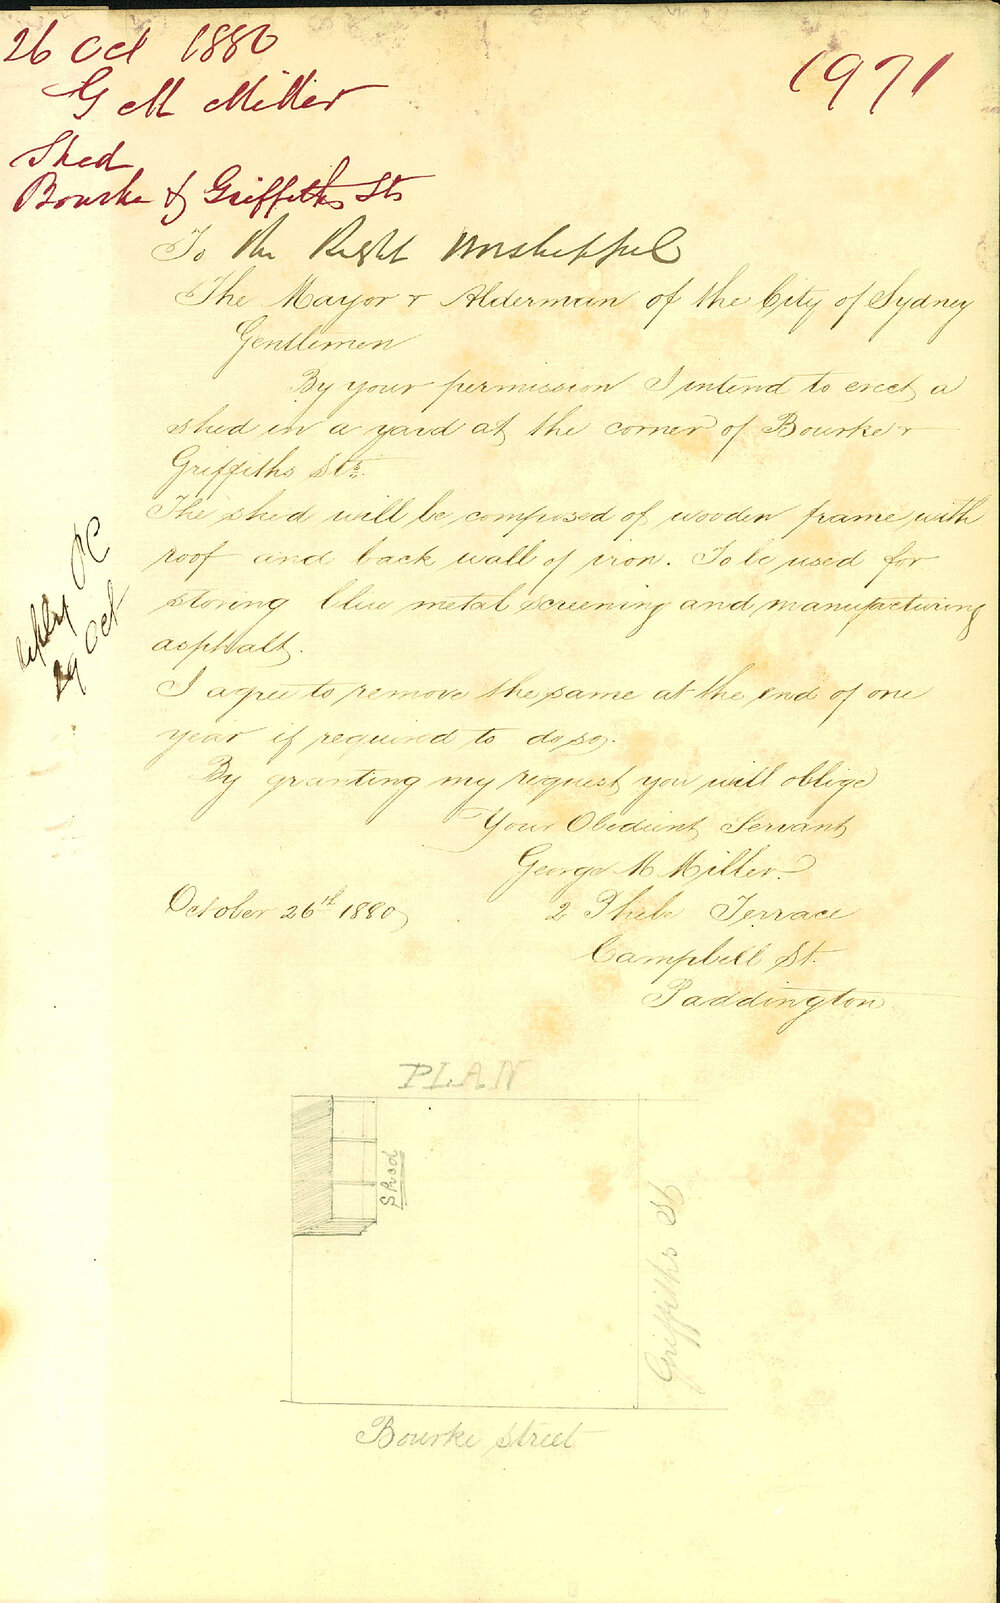 26 Oct 1880
1971
G M Miller
Shed
Bourke & Griffiths Sts
To the Right Worshipful
The Mayor & Alderman of the City of Sydney
Gentlemen
By your permission I intend to erect a
shed in a yard at the corner of Bourke &
Griffiths Sts.
The shed will be composed of wooden frame with
roof and back wall of iron. To be used for
storing blue metal screening and manufacturing
asphalt.
I agree to remove the same at the end of one
year if required to do so.
By granting my request you will oblige
Your Obedient Servant
George M Miller.
October 26th 1880
2 Phebe Terrace
Campbell St.
Paddington
29 Oct
PLAN
Shed
Griffiths St
Bourke Street